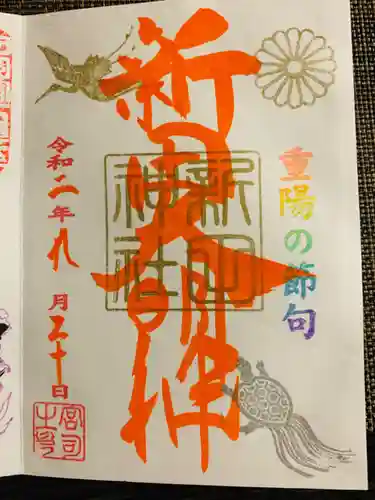 重陽の節句
新田大明神
新田神社
令和二年九月三十日
宮司之印